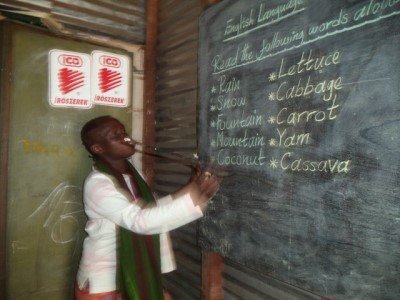 English Language
Read the following words aloud
*Rain
*Snow
*Fountain
*Mountain
*Coconut
*Lettuce
*Cabbage
*Carrot
*Yam
*Cassava
ICO
ROSZEREK
ICO
ROSZEREK